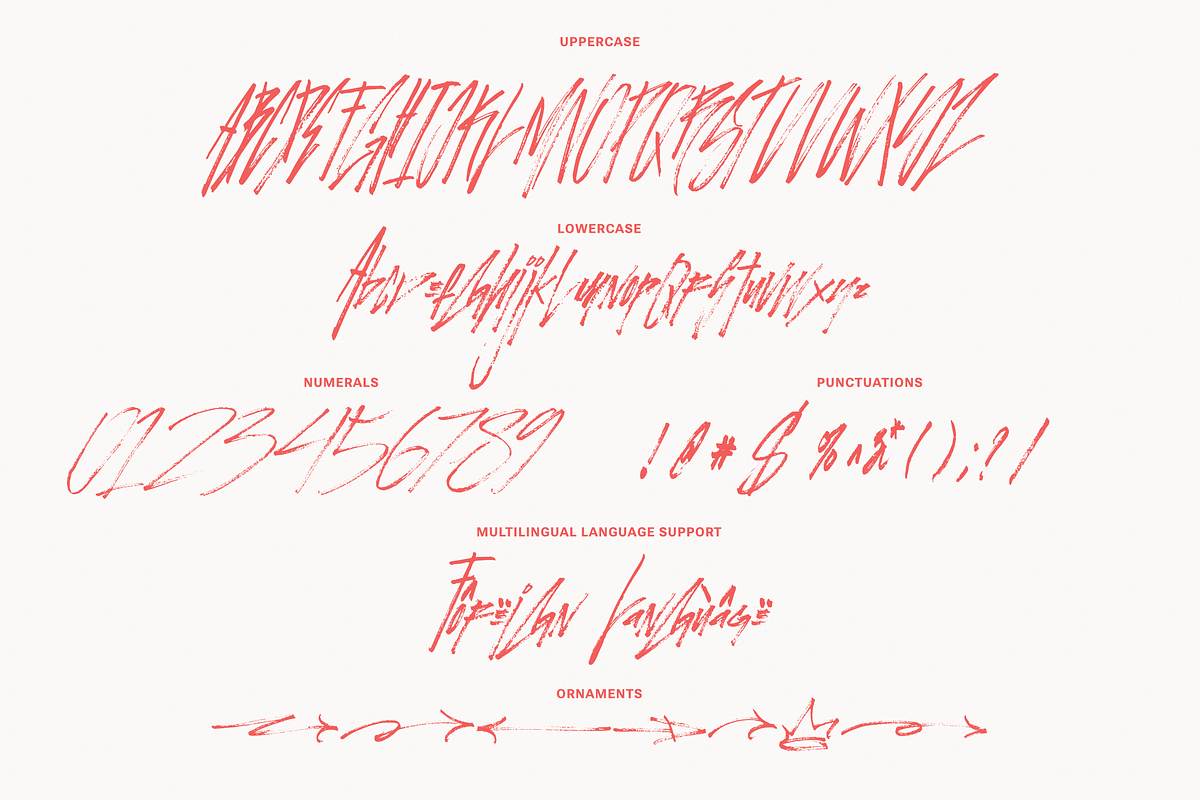 UPPERCASE
ABCDEFGHIJKLMNOPQRSTUVWXYZ
LOWERCASE
abcdefghijklmnopqrstuvwxyz
NUMERALS
0123456789
PUNCTUATIONS
!@#$%^&*();?/
MULTILINGUAL LANGUAGE SUPPORT
Fôrëign Langùâgë
ORNAMENTS